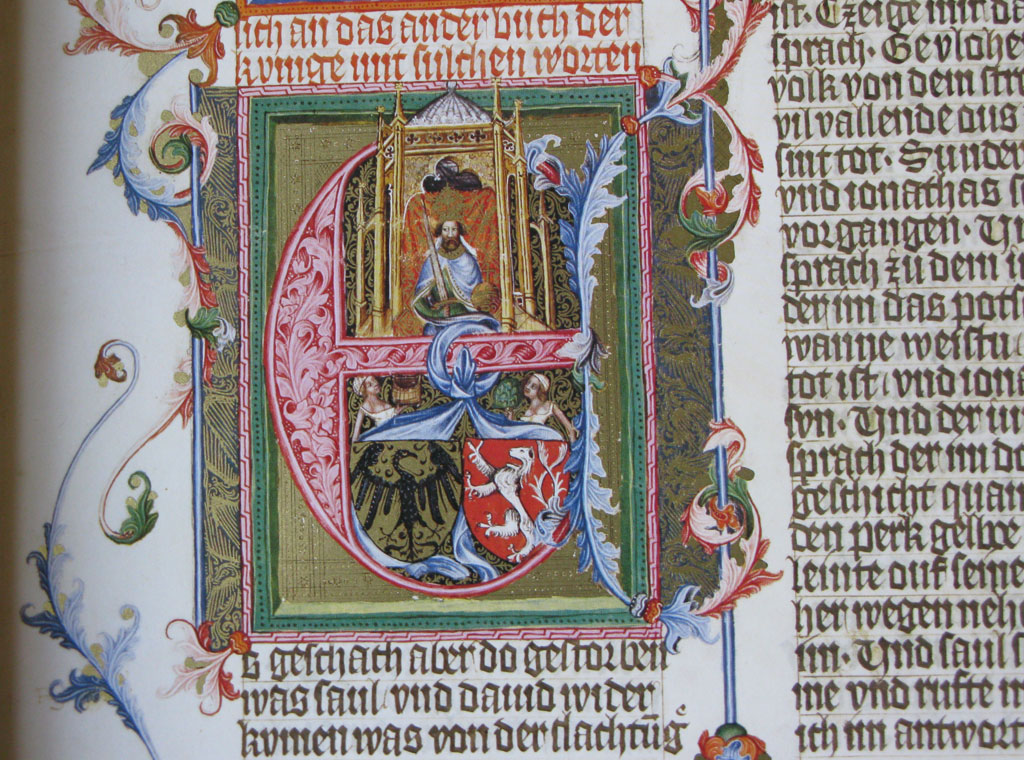 lich an das ander buch der
kvnige mit sulchen worten
E
s geschach aber do gestorben
was saul vnd dauid wider
kvmen was von der slachtūg
ist. Czeige mir da
sprach. Gevlohe
volk von dem stre
vil vallende aus
sint tot. Sunder
vnd ionathas s
vorgangen.
sprach zu dem
der im das
wanne weistu
tot ist vnd iona
svn. Vnd der iu
sprach der im do
geschicht quam
den perk gelbe
leinte auf seine
her wegen neh
im. Vnd saul s
me vnd rufte m
ich im antwort